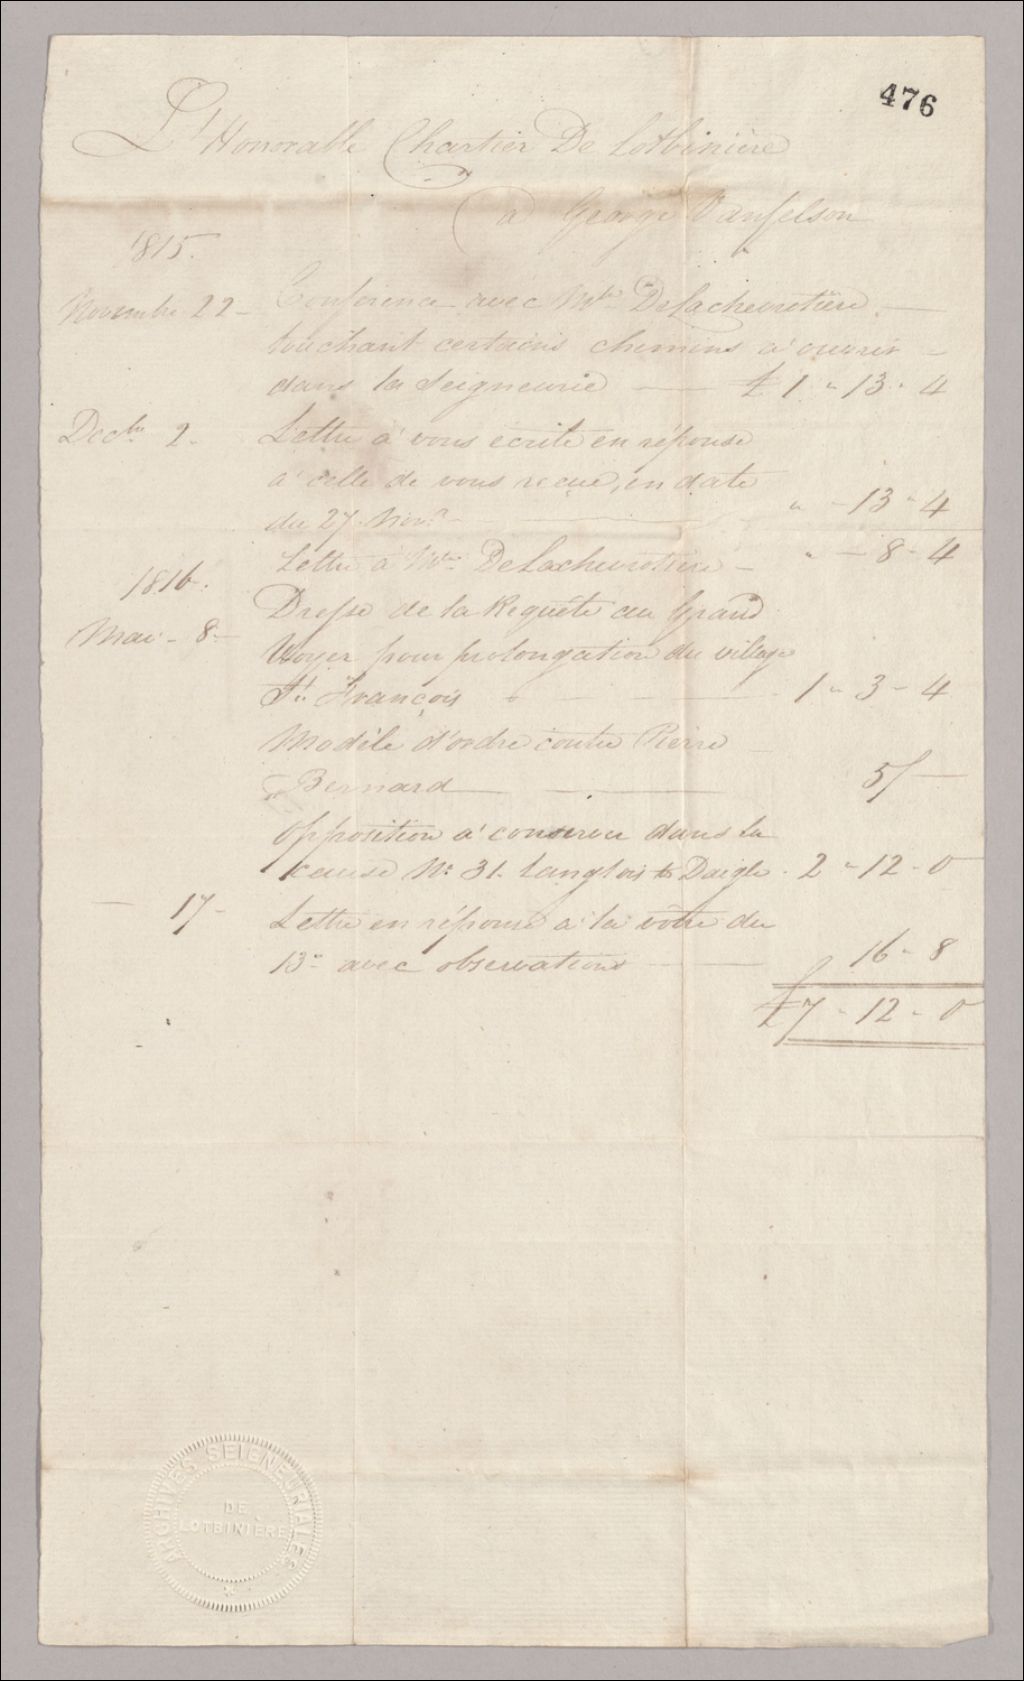 476
L'Honorable Chartier De Lotbinière
à George Vanfelson
1815.
Novembre 22 - Conférence avec Mr. Delachevrotière. —
touchant certains chemins à ouvrir -
dans la Seigneurie — £1 " 13 " 4
Decbre 2. Lettre à vous écrite en réponse
à celle de vous reçue, en date
du 27 Novr. — " - 13 " 4
Lettre à Mr. DeLachevrotière - " - 8 - 4
1816.
Mai - 8 - Dresse de la Requête au Grand
Voyer pour prolongation du village
St. François — 1 " 3 - 4
Modèle d'ordre contre Pierre
Bernard — 5/ —
Opposition à conserver dans la
cause No. 31. Langlois & Daigle. 2 " 12 - 0
— 17 - Lettre en réponse à la vôtre du
13 - avec observations — 16 - 8
£7 - 12 - 0
ARCHIVES SEIGNEURIALES
DE
LOTBINIÈRE